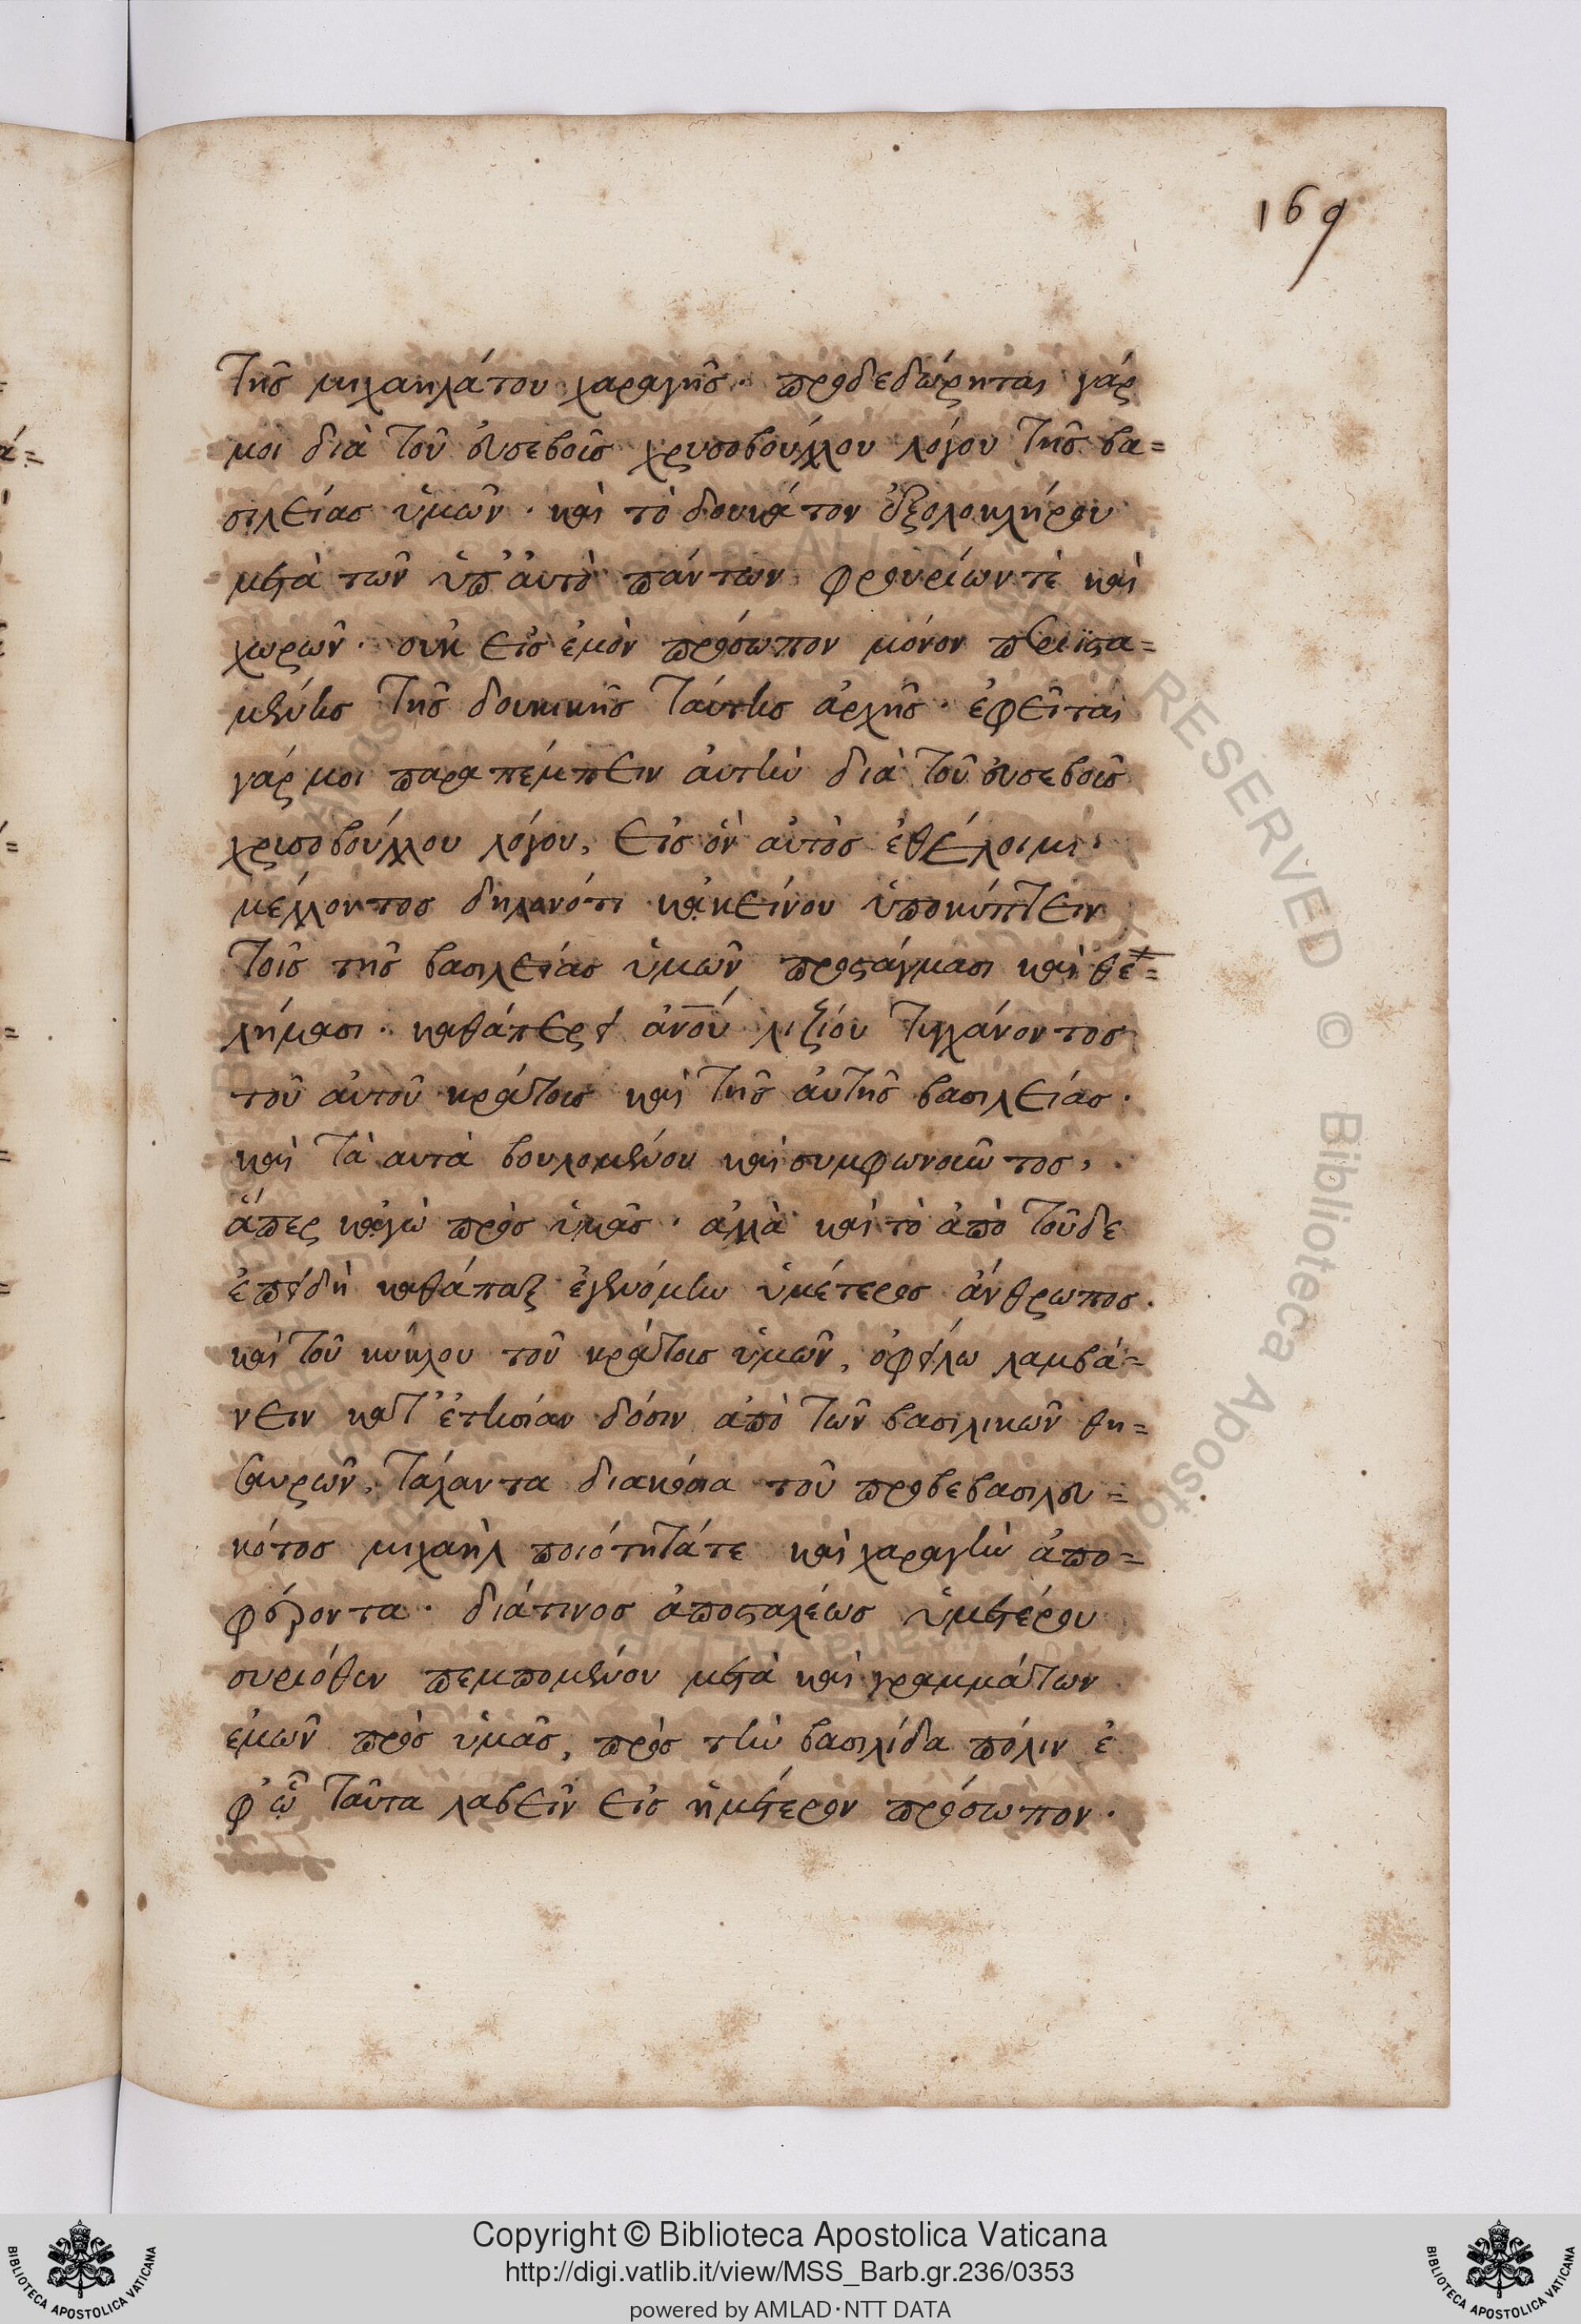 169
τῆς μιχαηλάτου χαραγῆς· προδεδώρηται γάρ
μοι διὰ τοῦ εὐσεβοῦς χρυσοβούλλου λόγου τῆς βα=
σιλείας ὑμῶν· καὶ τὸ δουκάτον ἐξολοκλήρου
μετὰ τῶν ὑπ' αὐτὸ πάντων φρουρίων τὲ καὶ
χωρῶν· οὐκ εἰς ἐμὸν πρόσωπον μόνον περιϊστα=
μένης τῆς δουκικῆς ταύτης ἀρχῆς· ἐφεῖται
γάρ μοι παραπέμπειν αὐτὴν διὰ τοῦ εὐσεβοῦς
χρισοβούλλου λόγου, εἰς ὃν αὐτὸς ἐθέλοιμι·
μέλλοντος δηλονότι κἀκείνου ὑποκύπτειν
τοῖς τῆς βασιλείας ὑμῶν προστάγμασι καὶ θε=
λήμασι· καθάπερεὶ ἀνοῦ λιζίου τυγχάνοντος
τοῦ αὐτοῦ κράτους καὶ τῆς αὐτῆς βασιλείας·
καὶ τὰ αυτὰ βουλομένου καὶ συμφωνοῦντος,
ἅπερ κἀγὼ πρὸς ὑμᾶς· αλλὰ καὶ τὸ ἀπὸ τοῦδε
ἐπειδὴ καθάπαξ ἐγενόμην ὑμέτερος ἄνθρωπος·
καὶ τοῦ κύκλου τοῦ κράτους ὑμῶν, ὀφείλω λαμβά=
νειν κατ' ἐτησίαν δόσιν ἀπὸ τῶν βασιλικῶν θη=
σαυρῶν, τάλαντα διακόσια τοῦ προβεβασιλευ=
κότος μιχαὴλ ποιότητά τε καὶ χαραγὴν ἀπο=
φέροντα· διά τινος ἀποσταλέως ὑμετέρου
συριόθεν πεμπομένου μετὰ καὶ γραμμάτων
ἐμῶν πρὸς ὑμᾶς, πρὸς τὴν βασιλίδα πόλιν ἐ
φ' ᾧ ταῦτα λαβεῖν εἰς ἡμέτερον πρόσωπον·
Copyright © Biblioteca Apostolica Vaticana
http://digi.vatlib.it/view/MSS_Barb.gr.236/0353
powered by AMLAD·NTT DATA
BIBLIOTECA APOSTOLICA VATICANA
BIBLIOTECA APOSTOLICA VATICANA